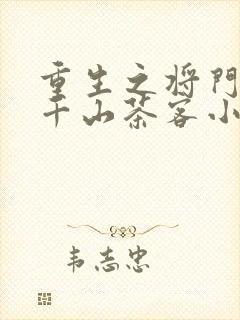 重生之将门
千山茶客小
韦志忠